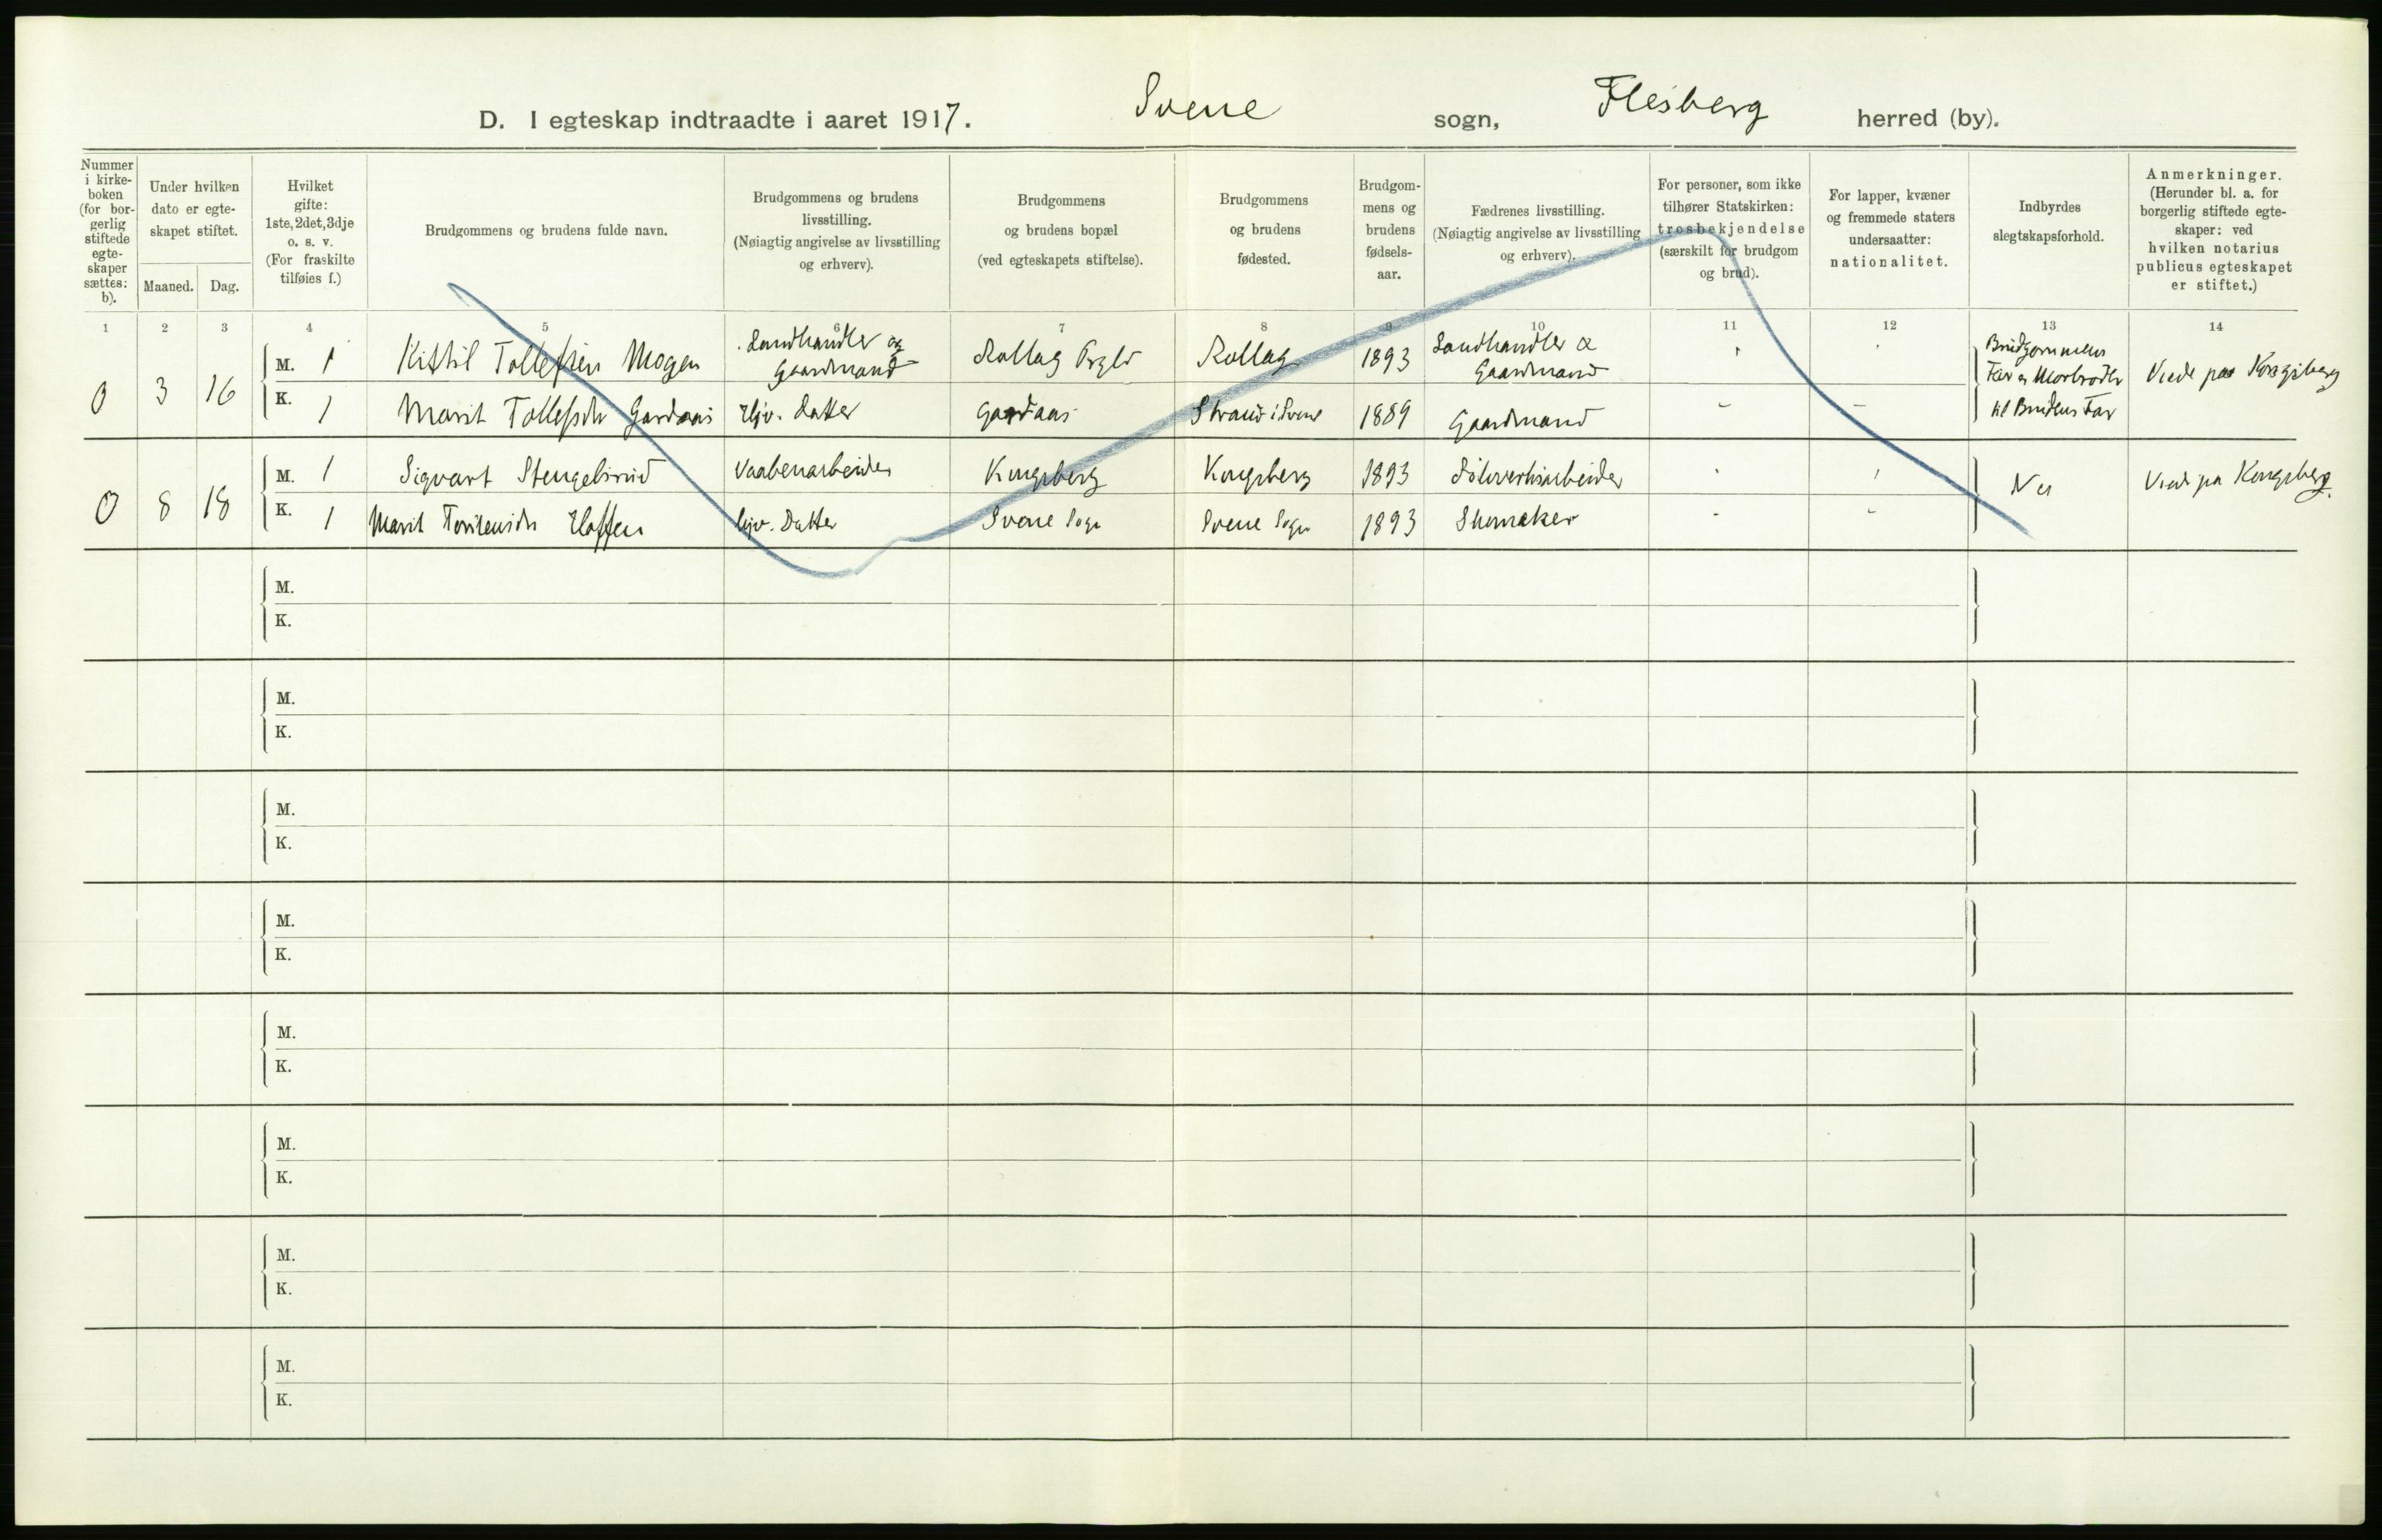 D. I egteskap indtraadte i aaret 1917. Svene sogn, Flesberg herred (by).
Nummer i kirke-boken (for bor-gerlig stiftede egte-skaper sættes: b).
Under hvilken dato er egte-skapet stiftet.
Maaned. Dag.
Hvilket gifte: 1ste, 2det, 3dje o. s. v. (For fraskilte tilføies f.)
Brudgommens og brudens fulde navn.
Brudgommens og brudens livsstilling. (Nøiagtig angivelse av livsstilling og erhverv).
Brudgommens og brudens bopæl (ved egteskapets stiftelse).
Brudgommens og brudens fødested.
Brudgom-mens og brudens fødsels-aar.
Fædrenes livsstilling. (Nøiagtig angivelse av livsstilling og erhverv).
For personer, som ikke tilhører Statskirken: trosbekjendelse (særskilt for brudgom og brud).
For lapper, kvæner og fremmede staters undersaatter: nationalitet.
Indbyrdes slegtskapsforhold.
Anmerkninger. (Herunder bl. a. for borgerlig stiftede egte-skaper: ved hvilken notarius publicus egteskapet er stiftet.)
1 2 3 4 5 6 7 8 9 10 11 12 13 14
0 3 16
M. 1 Kittil Tollefsen Mogen Landhandler og Gaardmand Rollag Prgld Rollag 1893 Landhandler & Gaardmand
K. 1 Marit Tollefsdtr Gardaas Hjv. datter Gardaas Strand i Svene 1889 Gaardmand - -
Brudgommens
Far er Morbroder
til Brudens Far
Viede paa Kongsberg
0 8 18
M. 1 Sigvart Stengelsrud Vaabenarbeider Kongsberg Kongsberg 1893 Sølvverksarbeider
K. 1 Marit Torstensdtr Hoffen hjv. Datter Svene Sogn Svene Sogn 1893 Skomaker - -
Nei
Viede paa Kongsberg.
M.
K.
M.
K.
M.
K.
M.
K.
M.
K.
M.
K.
M.
K.
M.
K.